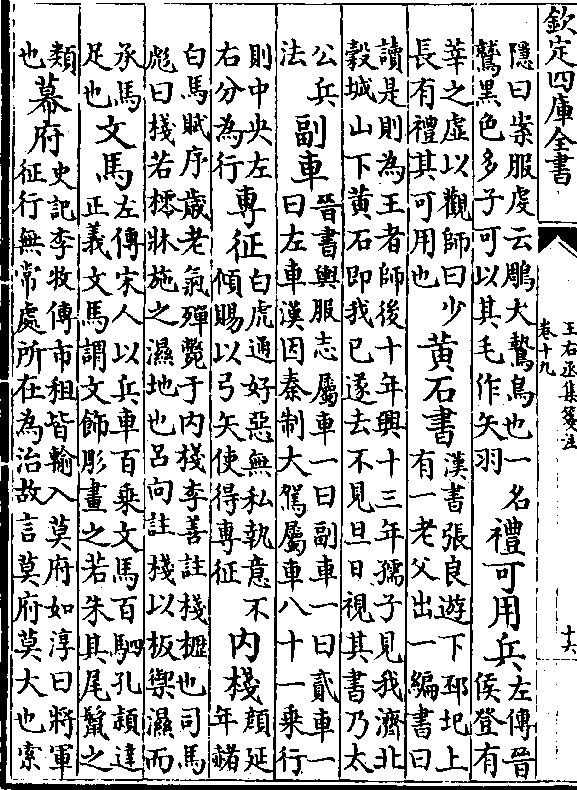 欽定四庫全書
王右丞集箋注
卷十九
十六
隱曰案服虔云鵰大鷙鳥也一名
鷲黑色多子可以其毛作矢羽
禮可用兵
左傳晉
侯登有
莘之虛以觀師曰少
長有禮其可用也
黄石書
漢書張良遊下邳圯上
有一老父出一編書曰
讀是則為王者師後十年興十三年孺子見我濟北
穀城山下黄石即我已遂去不見旦日視其書乃太
公兵
法
副車
晉書輿服志屬車一曰副車一曰貳車一
曰左車漢因秦制大駕屬車八十一乗行
則中央左
右分為行
專征
白虎通好惡無私執意不
傾賜以弓矢使得專征
内棧
顔延
年赭
白馬賦序歲老氣殫斃于内棧李善註棧櫪也司馬
彪曰棧若櫺牀施之濕地也吕向註棧以板禦濕而
承馬
足也
文馬
左傳宋人以兵車百乗文馬百駟孔頴達
正義文馬謂文飾彫畫之若朱其尾鬛之
類
也
幕府
史記李牧傳市租皆輸入莫府如淳曰將軍
征行無常處所在為治故言莫府莫大也索